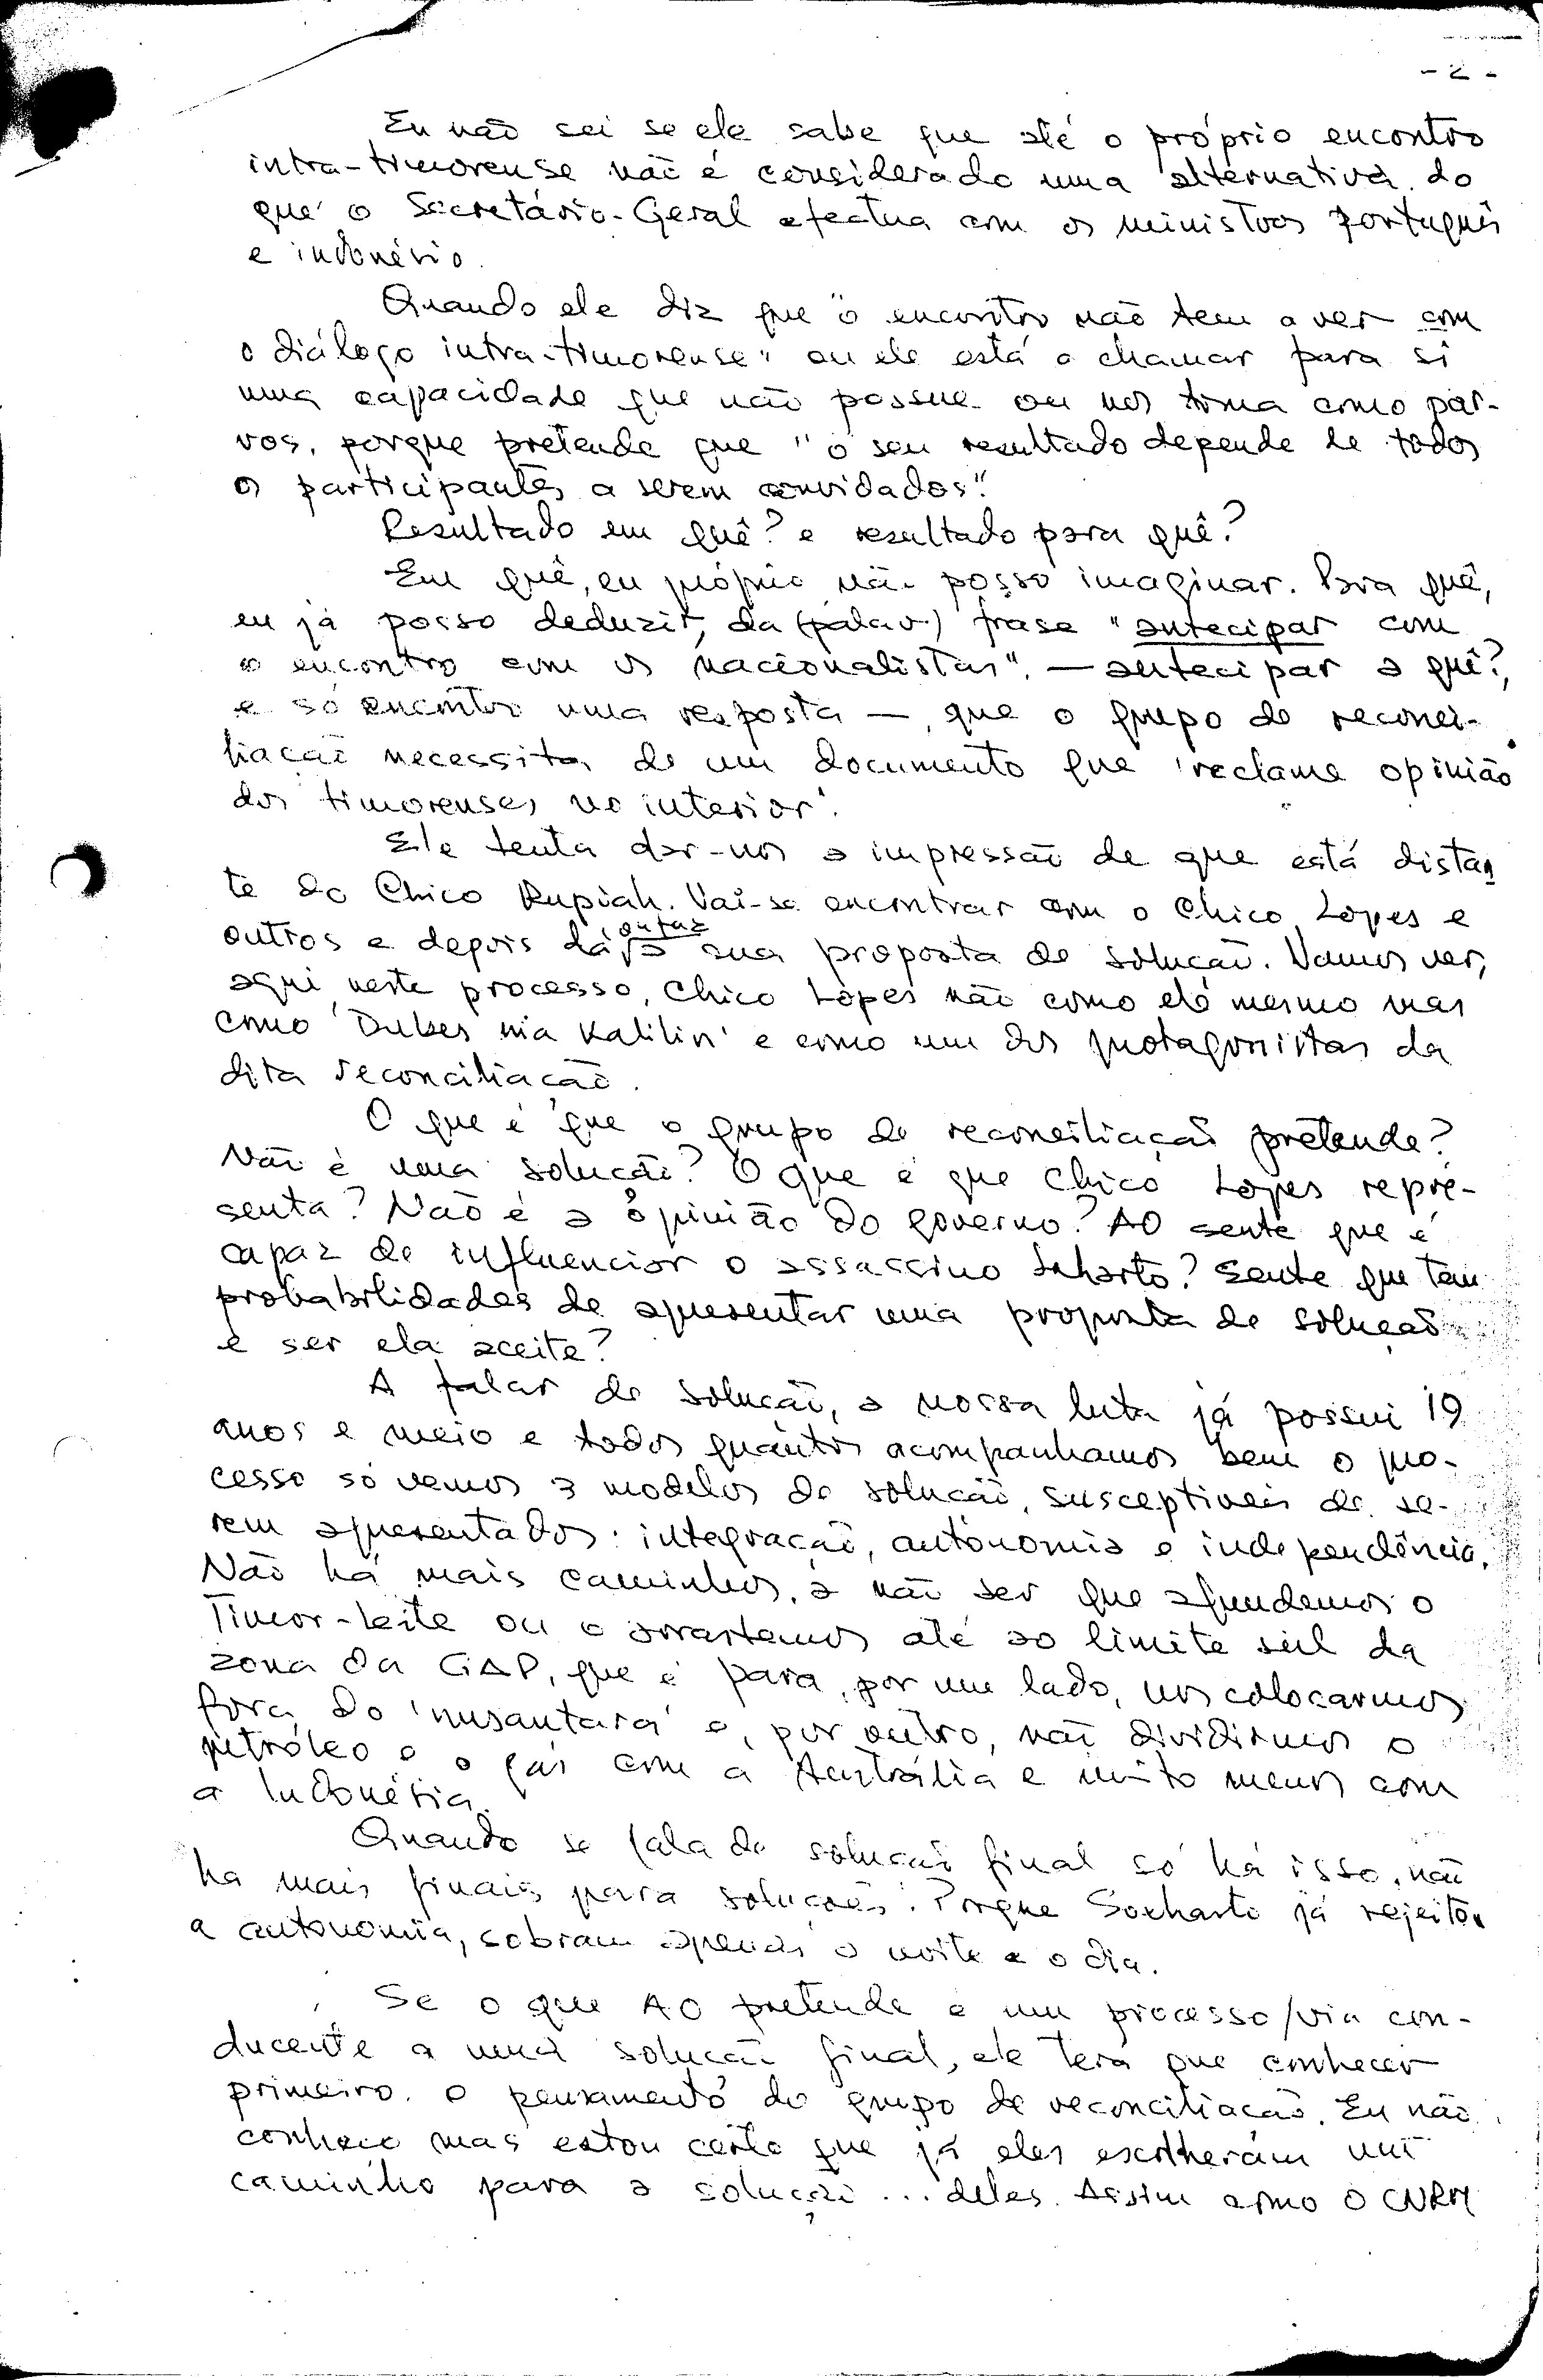 - 2 -
Eu não sei se ele sabe que até o próprio encontro
intra-timorense não é considerado uma alternativa do
que o Secretário-Geral efectua com os ministros português
e indonésio.
Quando ele diz que "o encontro não tem a ver com
o diálogo intra-timorense" ou ele está a chamar para si
uma capacidade que não possue ou nos toma como par-
vos, porque pretende que "o seu resultado depende de todos
os participantes a serem convidados".
Resultado em quê? e resultado para quê?
Em quê, eu próprio não posso imaginar. Para quê,
eu já posso deduzir, da (palav.) frase "antecipar com
o encontro com os nacionalistas". — antecipar a quê?,
e só encontro uma resposta —, que o grupo de reconci-
liação necessita de um documento que 'reclame opinião
dos timorenses no interior'.
Ele tenta dar-nos a impressão de que está distan
te do Chico Rupiah. Vai-se encontrar com o Chico Lopes e
outros e depois dá, outaz
a sua proposta de solução. Vamos ver,
aqui neste processo, Chico Lopes não como ele mesmo mas
como 'Dubes nia Kalilin' e como um dos protagonistas da
dita reconciliação.
O que é que o grupo de reconciliação pretende?
Não é uma solução? O que é que Chico Lopes repre-
senta? Não é a opinião do governo? AO sente que é
capaz de influenciar o assassino Suharto? Sente que tem
probabilidades de apresentar uma proposta de solução
e ser ela aceite?
A falar de solução, a nossa luta já possui 19
anos e meio e todos quantos acompanhamos bem o pro-
cesso só vemos 3 modelos de solução, susceptiveis de se-
rem apresentados: integração, autonomia e independência.
Não há mais caminhos, a não ser que afundemos o
Timor-Leste ou o arrastemos até ao limite sul da
zona da GAP, que é para, por um lado, nos colocarmos
fora do 'nusantara' e, por outro, não dividirmos o
petróleo e o gás com a Austrália e muito menos com
a Indonésia.
Quando se fala de solução final só há isso, não
há mais finais para soluções. Porque Soeharto já rejeitou
a autonomia, sobram apenas a noite e o dia.
Se o que AO pretende é um processo/via con-
ducente a uma solução final, ele terá que conhecer
primeiro o pensamento do grupo de reconciliação. Eu não
conheço mas estou certo que já eles escolheram um
caminho para a solução ... deles. Assim como o CNRM